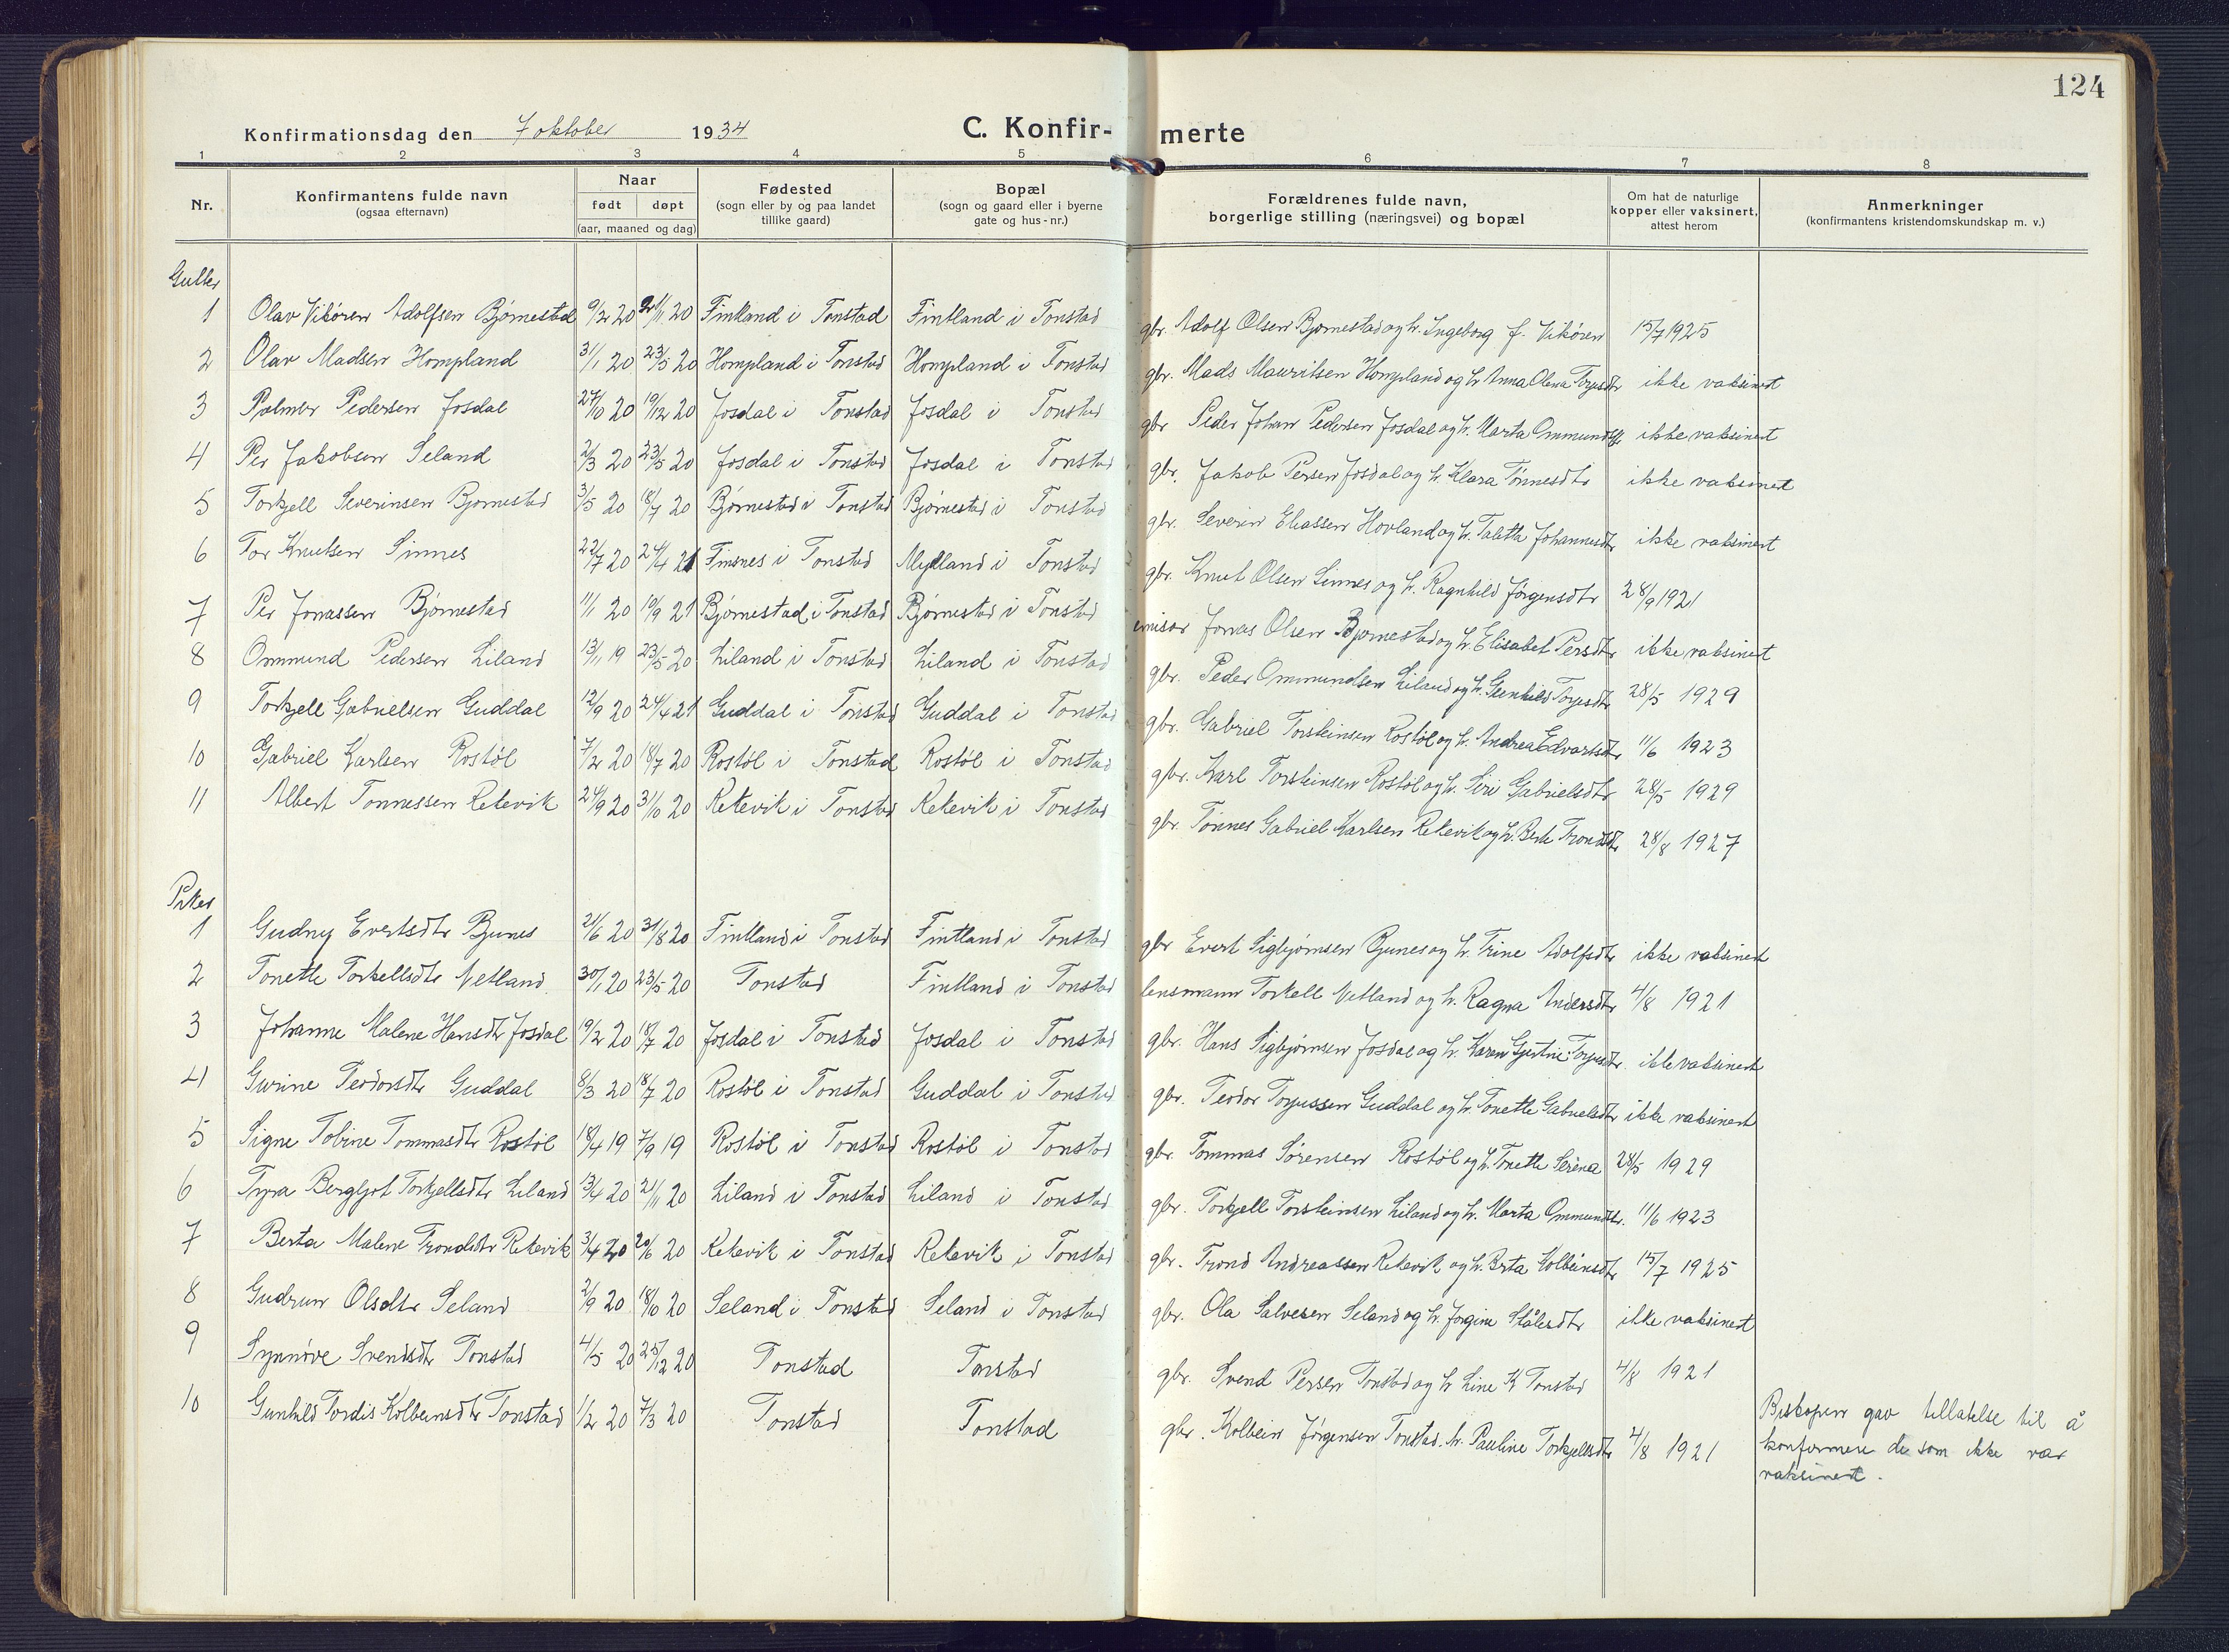 124
Konfirmationsdag den 7 oktober 1934 C. Konfir- merte
1 2 3 4 5 6 7 8
Nr. Konfirmantens fulde navn (ogsaa efternavn) Naar født døpt (aar, maaned og dag) Fødested (sogn eller by og paa landet tillike gaard) Bopæl (sogn og gaard eller i byerne gate og hus-nr.) Forældrenes fulde navn, borgerlige stilling (næringsvei) og bopæl Om hat de naturlige kopper eller vaksinert, attest herom Anmerkninger (konfirmantens kristendomskundskap m. v.)
Gutter
1 Olav Vikøren Adolfsen Bjørnestad 9/2 20 21/11 20 Fintland i Tonstad Fintland i Tonstad gbr. Adolf Olsen Bjørnestad og h. Ingeborg f. Vikøren 15/7 1925
2 Olav Madsen Hompland 31/1 20 23/5 20 Hompland i Tonstad Hompland i Tonstad gbr. Mads Mauritsen Hompland og h. Anna Olena Torjusdtr ikke vaksinert
3 Palmer Pedersen Josdal 27/10 20 19/12 20 Josdal i Tonstad Josdal i Tonstad gbr Peder Johan Pedersen Josdal og h. Marta Ommundsdtr ikke vaksinert
4 Per Jakobsen Seland 2/3 20 23/5 20 Josdal i Tonstad Josdal i Tonstad gbr. Jakob Persen Josdal og h. Klara Tønnesdtr ikke vaksinert
5 Torkjell Severinsen Bjørnestad 3/5 20 18/7 20 Bjørnestad i Tonstad Bjørnestad i Tonstad gbr. Severin Eliassen Hovland og h. Taletta Johannesdtr ikke vaksinert
6 Tor Knutsen Sinnes 22/7 20 24/4 21 Finsnes i Tonstad Mylland i Tonstad gbr. Knut Olsen Sinnes og h. Ragnhild Jørgensdtr 28/9 1921
7 Per Jonassen Bjørnestad 11/1 20 19/9 21 Bjørnestad i Tonstad Bjørnestad i Tonstad emissær Jonas Olsen Bjørnestad og h. Elisabet Persdtr ikke vaksinert
8 Ommund Pedersen Liland 13/11 19 23/5 20 Liland i Tonstad Liland i Tonstad gbr. Peder Ommundsen Liland og h. Torjusdtr 28/5 1929
9 Torkjell Gabrielsen Guddal 12/9 20 24/4 21 Guddal i Tonstad Guddal i Tonstad gbr. Gabriel Torsteinsen Rostøl og h. Andrea Edvartsdtr 11/6 1923
10 Gabriel Karlsen Rostøl 7/2 20 18/7 20 Rostøl i Tonstad Rostøl i Tonstad gbr. Karl Torsteinsen Rostøl og h. Siri Gabrielsdtr 28/5 1929
11 Albert Tønnessen Retevik 24/9 20 31/10 20 Retevik i Tonstad Retevik i Tonstad gbr. Tønnes Gabriel Karlsen Retevik og h. Berte Trondsdtr 28/8 1927
Piker
1 Gudny Evertsdtr Bjunes 21/6 20 31/8 20 Fintland i Tonstad Fintland i Tonstad gbr Evert Sigbjørnsen Bjunes og h. Trine Adolfsdtr ikke vaksinert
2 Tonette Torkellsdtr Netland 30/1 20 23/5 20 Tonstad Fintland i Tonstad lensmann Torkell Netland og h. Ragna Andersdtr 4/8 1921
3 Johanne Malene Hansdtr Josdal 19/2 20 18/7 20 Josdal i Tonstad Josdal i Tonstad gbr. Hans Sigbjørnsen Josdal og h. Karen Gjertine Torjusdtr. ikke vaksinert
4 Gurine Teodorsdtr Guddal 8/3 20 18/7 20 Rostøl i Tonstad Guddal i Tonstad gbr. Teodor Torjussen Guddal og h. Tonette Gabrielsdtr ikke vaksinert
5 Signe Tobine Tommasdtr Rostøl 18/4 19 7/9 19 Rostøl i Tonstad Rostøl i Tonstad gbr. Tommas Sørensen Rostøl og h. Tonette Serena 28/5 1929
6 Tyra Bergljot Torkjellsdtr Liland 13/4 20 21/11 20 Liland i Tonstad Liland i Tonstad gbr. Torkjell Torsteinsen Liland og h. Marta Ommundsdtr. 11/6 1923
7 Berta Malene Trondsdtr Retevik 3/4 20 20/6 20 Retevik i Tonstad Retevik i Tonstad gbr. Trond Andreassen Retevik og h. Berta Kolbeinsdtr 15/7 1925
8 Gudrun Olsdtr Seland 2/9 20 18/10 20 Seland i Tonstad Seland i Tonstad gbr. Ola Salvesen Seland og h. Jorgine Ståledtr ikke vaksinert
9 Synnøve Svendsdtr Tonstad 4/5 20 25/12 20 Tonstad Tonstad gbr. Svend Persen Tonstad og h Line K Tonstad 4/8 1921
10 Gunhild Tordis Kolbeinsdtr Tonstad 1/2 20 7/3 20 Tonstad Tonstad gbr. Kolbein Jørgensen Tonstad. h. Pauline Torkjellsdtr 4/8 1921
Biskopen gav tillatelse til å
konfirmere de som ikke var
vaksinert.